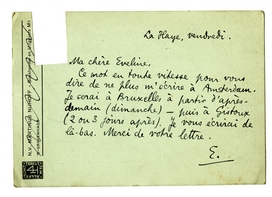 La Haye, vendredi.
Ma chère Eveline,
Ce mot en toute vitesse pour vous
dire de ne plus m'écrire à Amsterdam.
Je serai à Bruxelles à partir d'après-
demain (dimanche) — puis à Gistoux
(2 ou 3 jours après). Je vous écrirai de
là-bas. Merci de votre lettre.
E.